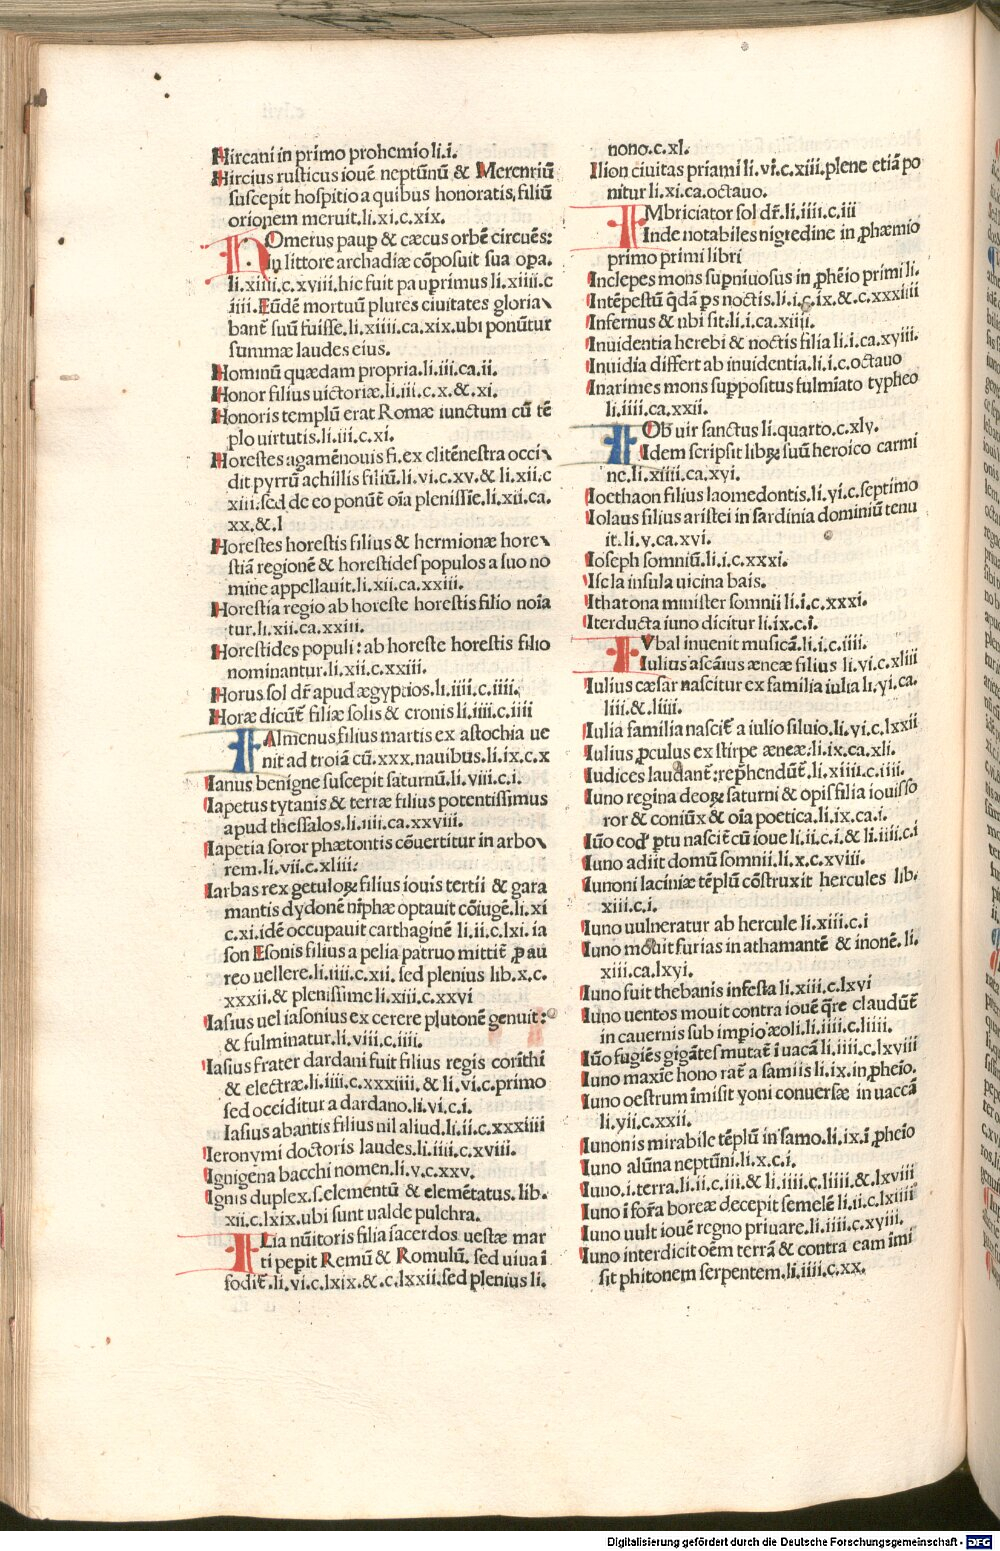 Hircani in primo prohemio li.i.
Hircius rusticus iouē neptūnū & Merenriū
suscepit hospitio a quibus honoratis, filiū
orionem meruit.li.xi.c.xix.
HOmerus paup & cæcus orbē circuēs:
in littore archadiæ cōposuit sua opa.
li.xiiii.c.xviii.hic fuit pauprimus li.xiiii.c
iiii.Eūdē mortuū plures ciuitates gloria
bant̄ suū fuisse.li.xiiii.ca.xix.ubi ponūtur
summæ laudes eius.
Hominū quædam propria.li.iii.ca.ii.
Honor filius uictoriæ.li.iii.c.x.&.xi.
Honoris templū erat Romæ iunctum cū tē
plo uirtutis.li.iii.c.xi.
Horestes agamēnouis fi.ex clitēnestra occi
dit pyrrū achillis filiū.li.vi.c.xv.& li.xii.c
xiii:sed de eo ponūt oīa plenissīe.li.xii.ca.
xx.&.l
Horestes horestis filius & hermionæ hore
stiā regionē & horestides populos a suo no
mine appellauit.li.xii.ca.xxiii.
Horestia regio ab horeste horestis filio noīa
tur.li.xii.ca.xxiii.
Horestides populi: ab horeste horestis filio
nominantur.li.xii.c.xxiii.
Horus sol dr̄ apud ægyptios.li.iiii.c.iiii.
Horæ dicūt̄ filiæ solis & cronis li.iiii.c.iiii
IAlmenus filius martis ex astochia ue
nit ad troiā cū.xxx.nauibus.li.ix.c.x
Ianus benigne suscepit saturnū.li.viii.c.i.
Iapetus tytanis & terræ filius potentissimus
apud thessalos.li.iiii.ca.xxviii.
Iapetia soror phætontis cōuertitur in arbo
rem.li.vii.c.xliii:
Iarbas rex getuloꝝ filius iouis tertii & gara
mantis dydonē nīphæ optauit cōiugē.li.xi
c.xi.idē occupauit carthaginē li.ii.c.lxi.ia
son Esonis filius a pelia patruo mittit̄ ꝓ au
reo uellere.li.iiii.c.xii. sed plenius lib.x.c.
xxxii.& plenissime li.xiii.c.xxvi
Iasius uel iasonius ex cerere plutonē genuit:
& fulminatur.li.viii.c.iiii.
Iasius frater dardani fuit filius regis corīthi
& electræ.li.iiii.c.xxxiiii.& li.vi.c.primo
sed occiditur a dardano.li.vi.c.i.
Iasius abantis filius nil aliud.li.ii.c.xxxiiii
Ieronymi doctoris laudes.li.iiii.c.xviii.
Ignigena bacchi nomen.li.v.c.xxv.
Ignis duplex.s.elementū & elemētatus. lib.
xii.c.lxix.ubi sunt ualde pulchra.
ILia nūitoris filia sacerdos uestæ mar
ti pepit Remū & Romulū. sed uiua ī
fodit̄.li.vi.c.lxix.&.c.lxxii.sed plenius li.
nono.c.xl.
Ilion ciuitas priami li.vi.c.xiii.plene etiā po
nitur li.xi.ca.octauo.
IMbriciator sol dr̄.li.iiii.c.iii
Inde notabiles nigredine in ꝓhæmio
primo primi libri
Inclepes mons supniuosus in ꝓhēio primi li.
Intēpestū q̄dā ps noctis.li.i.c.ix.&.c.xxxiiii
Infernus & ubi sit.li.i.ca.xiiii.
Inuidentia herebi & noctis filia li.i.ca.xviii.
Inuidia differt ab inuidentia.li.i.c.octauo
Inarimes mons suppositus fulmiato typheo
li.iiii.ca.xxii.
IOb uir sanctus li.quarto.c.xly.
Idem scripsit libꝝ suū heroico carmi
ne.li.xiiii.ca.xyi.
Ioethaon filius laomedontis.li.yi.c.septimo
Iolaus filius aristei in sardinia dominiū tenu
it.li.v.ca.xvi.
Ioseph somniū.li.i.c.xxxi.
Iscla insula uicina bais.
Ithatona minister somnii li.i.c.xxxi.
Iterducta iuno dicitur li.ix.c.i.
IVbal inuenit musicā.li.i.c.iiii.
Iulius ascāius æneæ filius li.vi.c.xliii
Iulius cæsar nascitur ex familia iulia li.yi.ca.
liii.& liiii.
Iulia familia nascit̄ a iulio siluio.li.yi.c.lxxii
Iulius ꝓculus ex stirpe æneæ:li.ix.ca.xli.
Iudices laudant̄:rep̄hendūt̄.li.xiiii.c.iiii.
Iuno regina deoꝝ saturni & opis filia iouis so
ror & coniūx & oīa poetica.li.ix.ca.i.
Iūo eod̄ ptu nascit̄ cū ioue li.ii.c.i.& li.iiii.c.i
Iuno adiit domū somnii.li.x.c.xviii.
Iunoni laciniæ tēplū cōstruxit hercules lib.
xiii.c.i.
Iuno uulneratur ab hercule li.xiii.c.i
Iuno mouit furias in athamantē & inonē.li.
xiii.ca.lxyi.
Iuno fuit thebanis infesta li.xiii.c.lxyi
Iuno uentos mouit contra iouē q̄re claudūt̄
in cauernis sub impio æoli.li.iiii.c.liiii.
Iūo fugiēs gigātes mutat̄ ī uacā li.iiii.c.lxviii
Iuno maxīe hono rat̄ a samiis li.ix.in ꝓheio.
Iuno oestrum īmisit yoni conuersæ in uaccā
li.yii.c.xxii.
Iunonis mirabile tēplū in samo.li.ix.ī ꝓheio
Iuno alūna neptūni.li.x.c.i.
Iuno.i.terra.li.ii.c.iii.& li.iiii.c.liiii.& lxviii
Iuno ī for̄a boreæ decepit semelē li.ii.c.lxiiii
Iuno uult iouē regno priuare.li.iiii.c.xyiii.
Iuno interdicit oēm terrā & contra eam īmi
sit phitonem serpentem.li.iiii.c.xx.
Digitalisierung gefördert durch die Deutsche Forschungsgemeinschaft - DFG